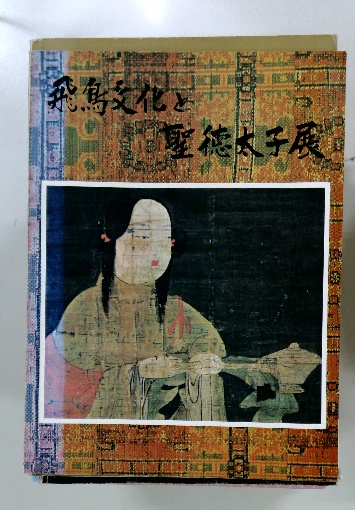 飛鳥文化と
聖徳太子展